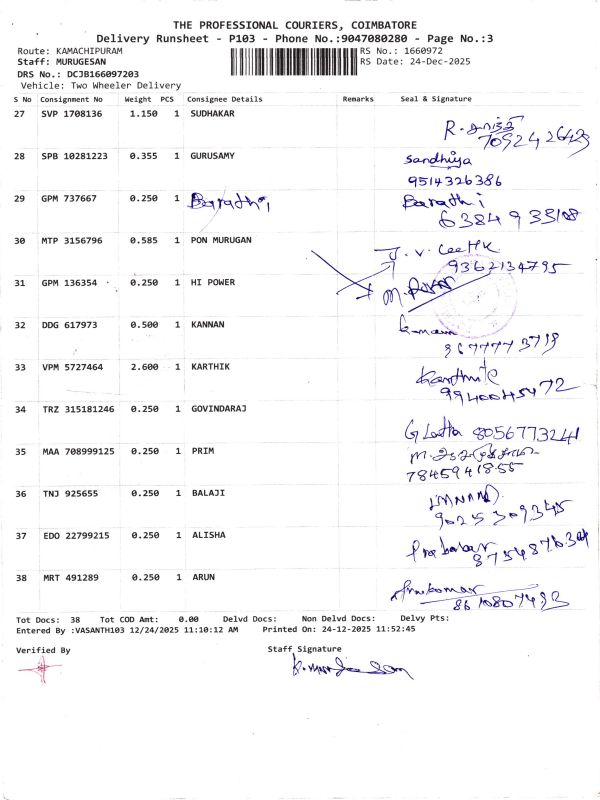 THE PROFESSIONAL COURIERS, COIMBATORE
Delivery Runsheet - P103 - Phone No.:9047080280 - Page No.:3
Route: KAMACHIPURAM RS No.: 1660972
Staff: MURUGESAN RS Date: 24-Dec-2025
DRS No.: DCJB166097203
Vehicle: Two Wheeler Delivery
S No Consignment No Weight PCS Consignee Details Remarks Seal & Signature
27 SVP 1708136 1.150 1 SUDHAKAR
28 SPB 10281223 0.355 1 GURUSAMY Sandhiya
9514326386
29 GPM 737667 0.250 1 Barathi Barathi
30 MTP 3156796 0.585 1 PON MURUGAN
9362134795
31 GPM 136354 0.250 1 HI POWER
32 DDG 617973 0.500 1 KANNAN
33 VPM 5727464 2.600 1 KARTHIK Karthik
9940045472
34 TRZ 315181246 0.250 1 GOVINDARAJ
G Latha 8056773241
35 MAA 708999125 0.250 1 PRIM
7845941855
36 TNJ 925655 0.250 1 BALAJI
9025309345
37 EDO 22799215 0.250 1 ALISHA
38 MRT 491289 0.250 1 ARUN
8610807492
Tot Docs: 38 Tot COD Amt: 0.00 Delvd Docs: Non Delvd Docs: Delvy Pts:
Entered By :VASANTH103 12/24/2025 11:10:12 AM Printed On: 24-12-2025 11:52:45
Verified By Staff Signature